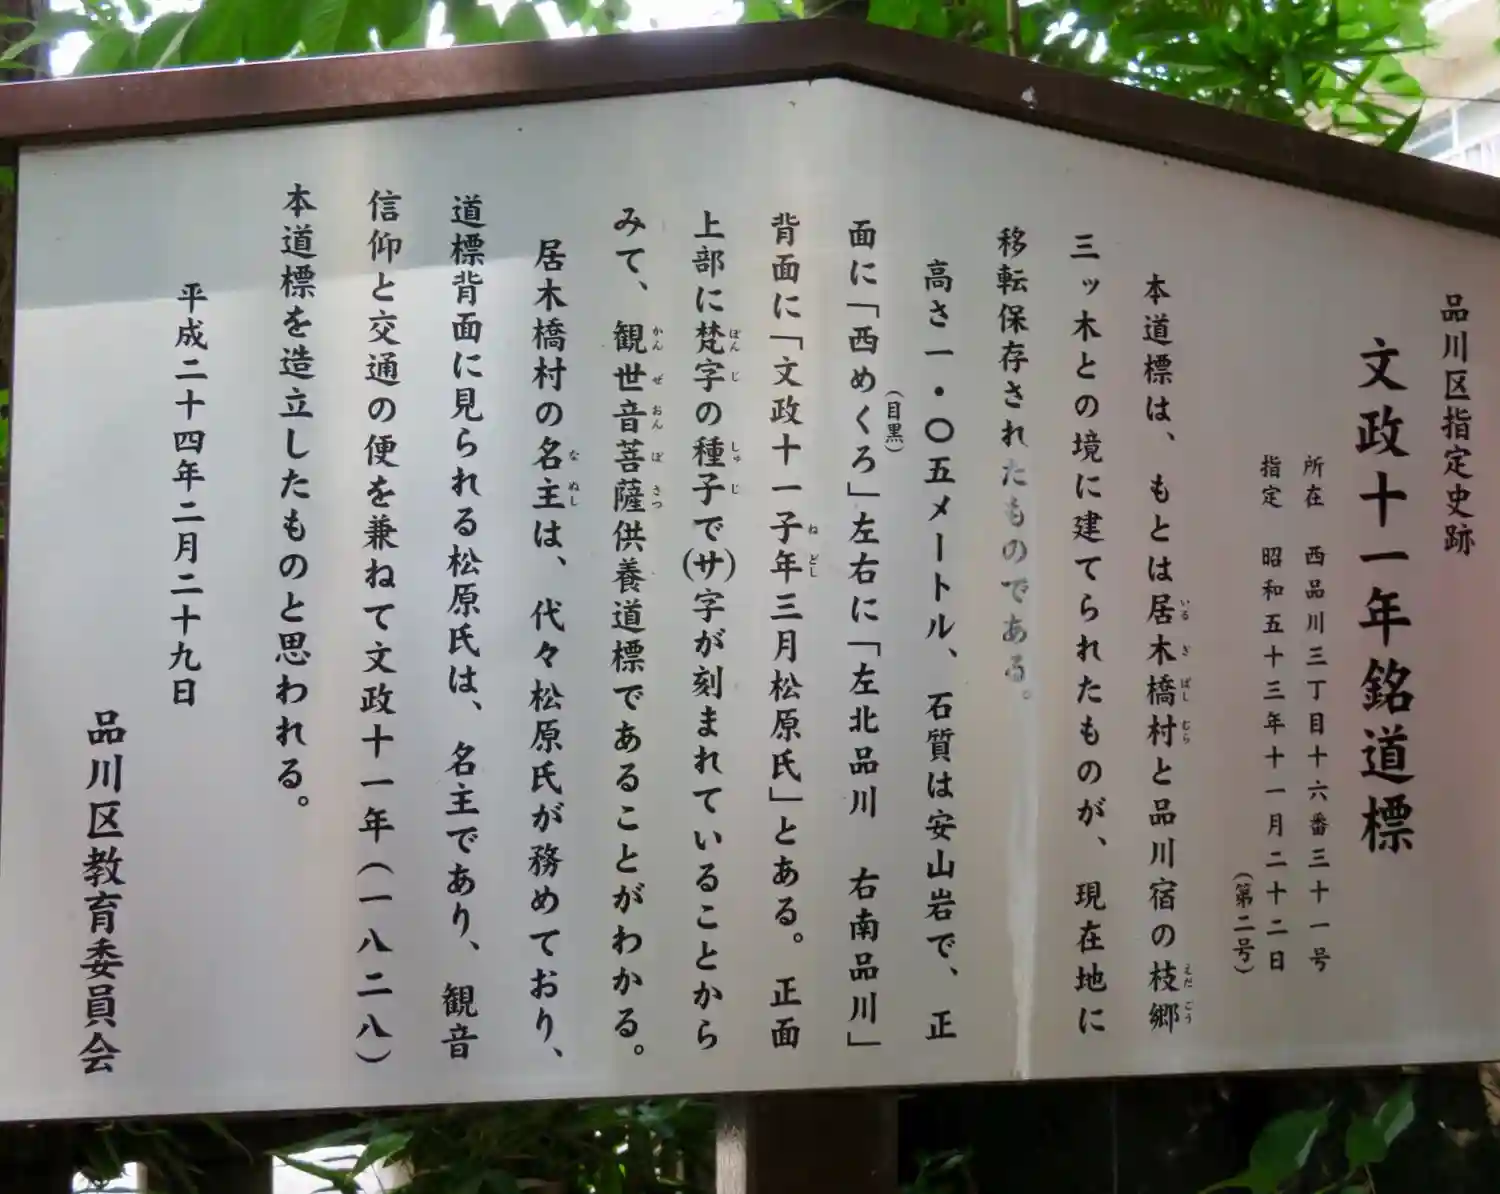 品川区指定史跡
文政十一年銘道標
所在　西品川三丁目十六番三十一号
指定　昭和五十三年十一月二十二日
（第二号）
本道標は、もとは居木橋村と品川宿の枝郷
いるぎばしむら
えだごう
三ッ木との境に建てられたものが、現在地に
移転保存されたものである。
高さ一・〇五メートル、石質は安山岩で、正
面に「西めくろ」左右に「左北品川　右南品川」
（目黒）
背面に「文政十一子年三月松原氏」とある。正面
ねどし
上部に梵字の種子で(サ)字が刻まれていることから
ぼんじ
しゅじ
みて、観世音菩薩供養道標であることがわかる。
かんぜおんぼさつ
居木橋村の名主は、代々松原氏が務めており、
なぬし
道標背面に見られる松原氏は、名主であり、観音
信仰と交通の便を兼ねて文政十一年（一八二八）
本道標を造立したものと思われる。
平成二十四年二月二十九日
品川区教育委員会